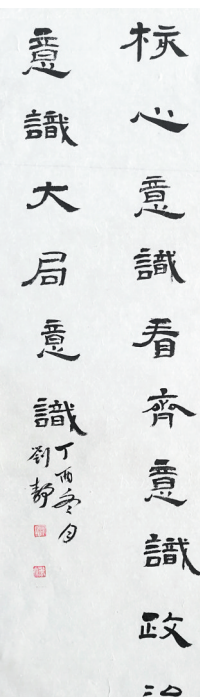 核心意識看齊意識政治
意識大局意識
丁酉冬月
劉靜